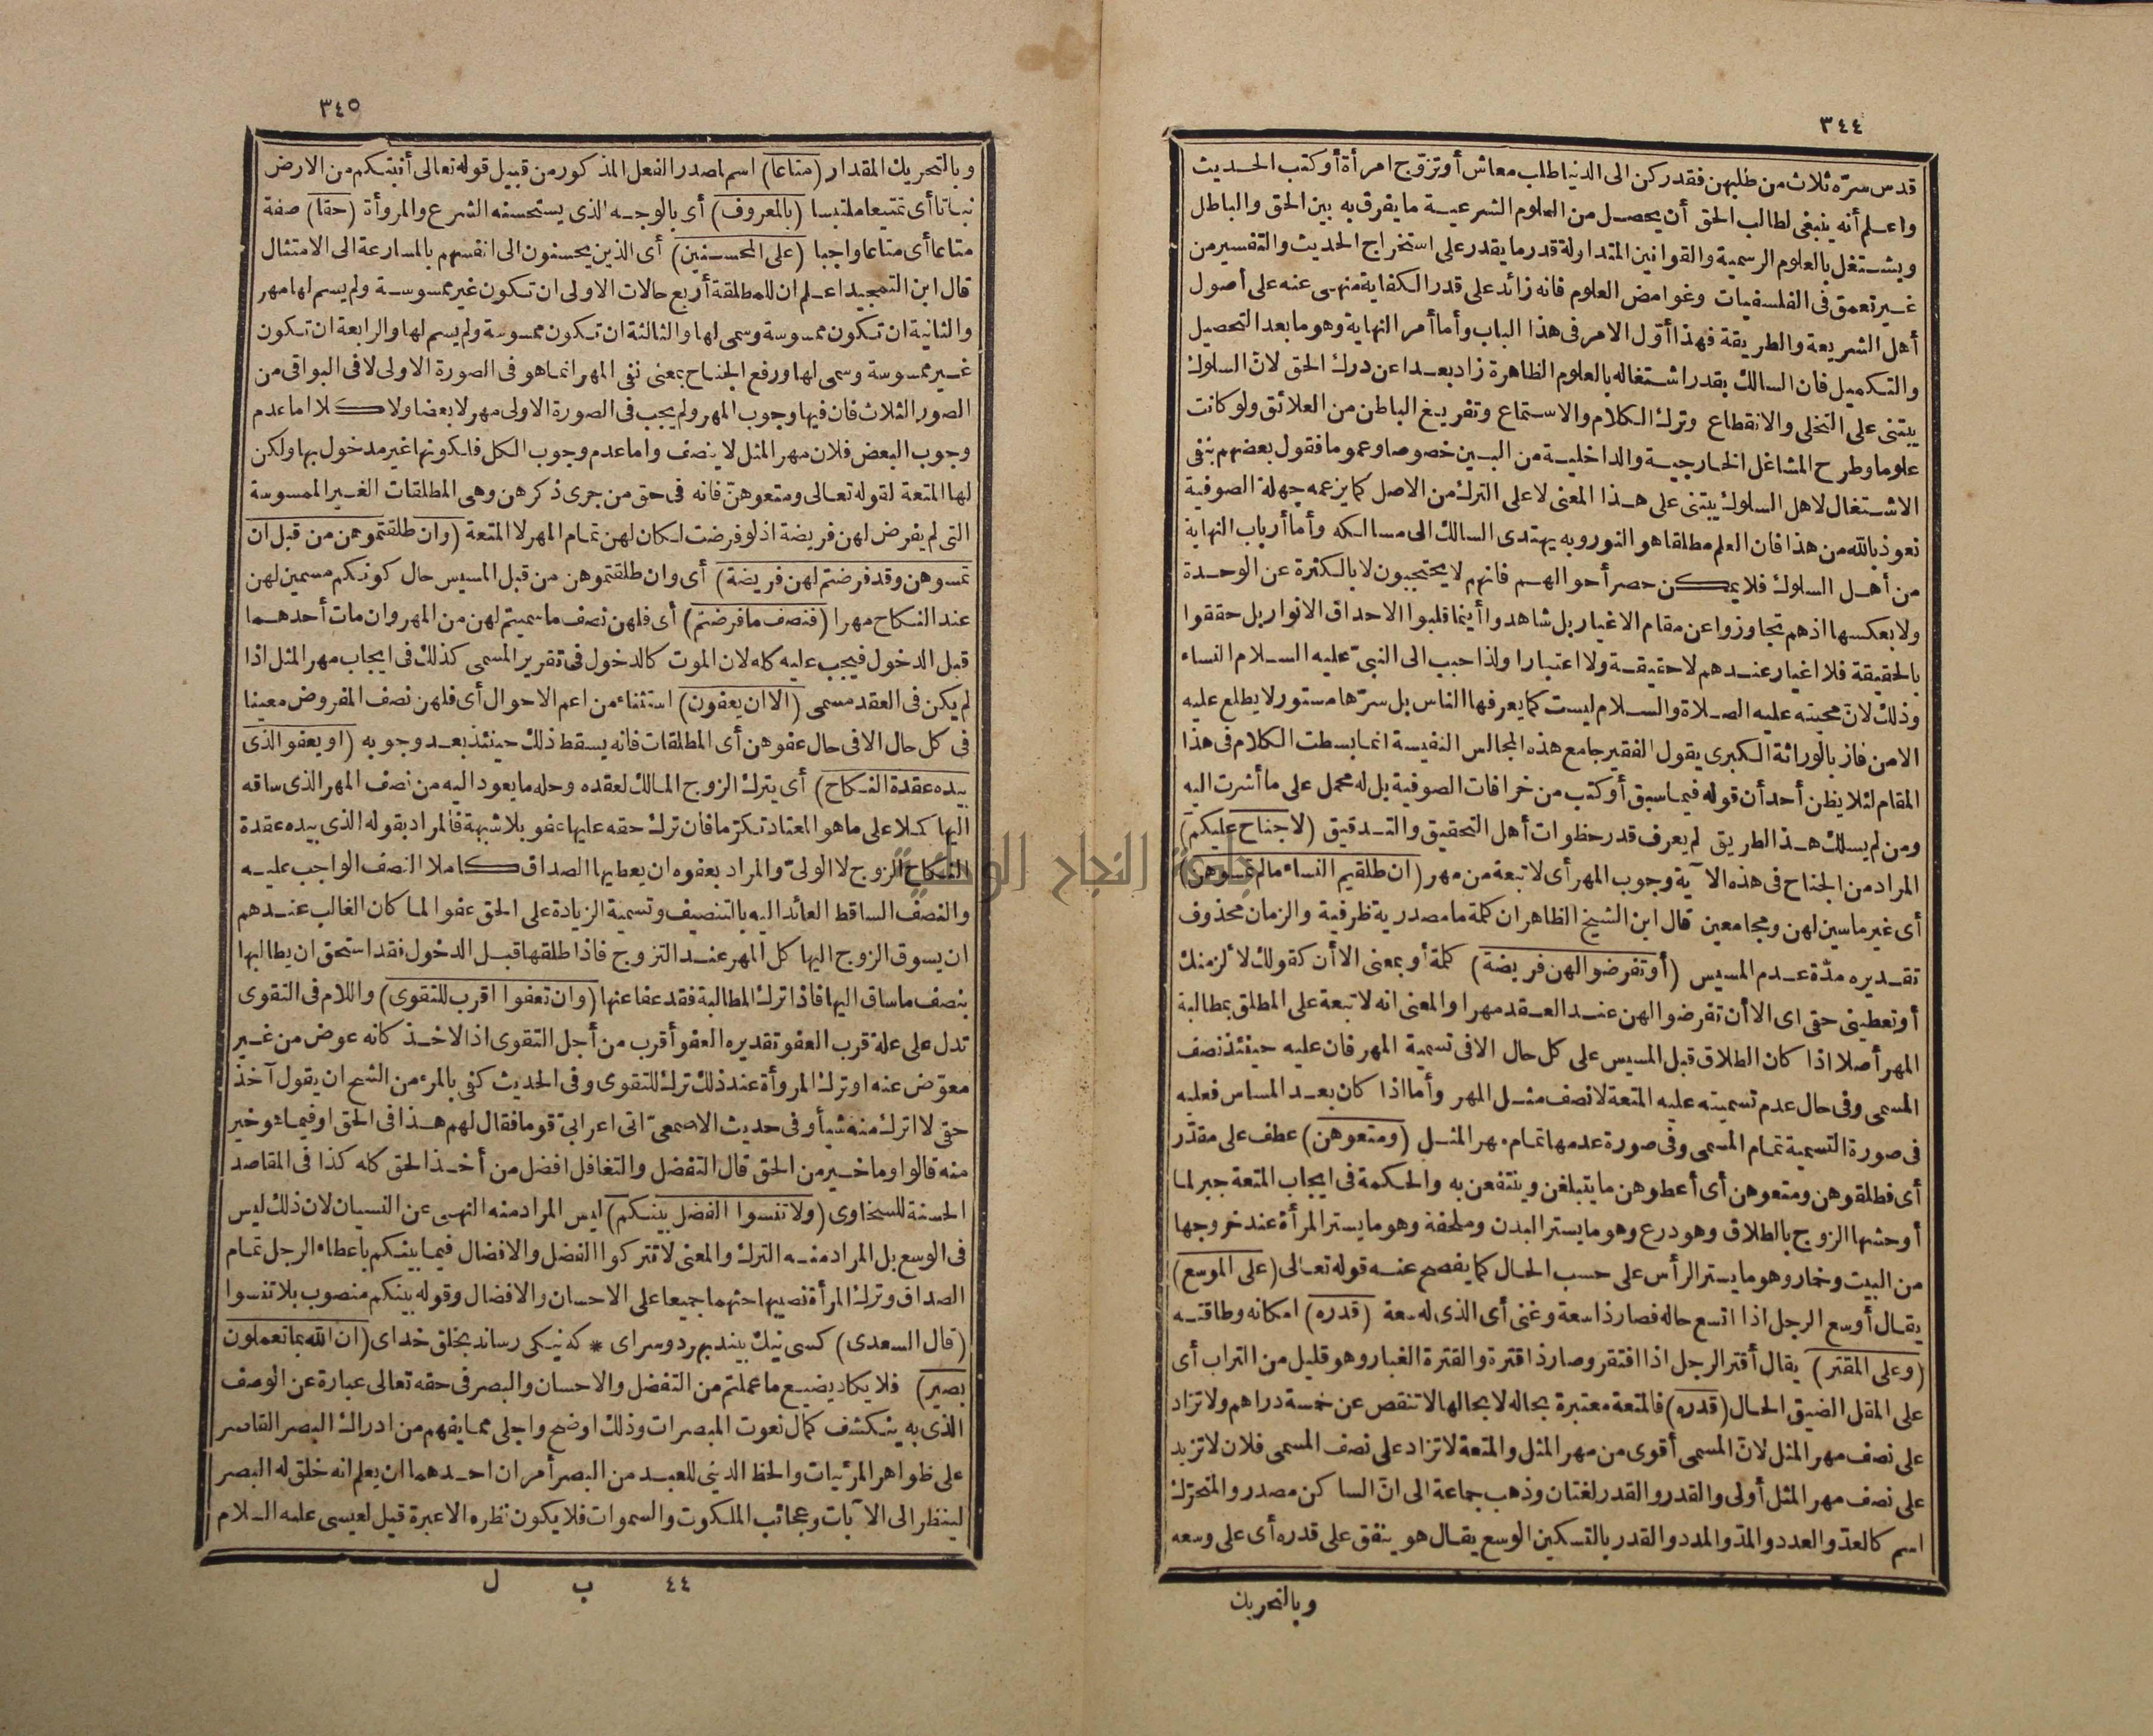 ٣٤٤
قدس سرّه ثلاث من طلبهن فقد ركن الى الدنيا طلب معاش أو تزوّج امرأة أو كتب الحديث
واعلم أنه ينبغى لطالب الحق أن يحصل من العلوم الشرعية ما يفرق به بين الحق والباطل
ويشتغل بالعلوم الرسمية والقوانين المتداولة قدر ما يقدر على استخراج الحديث والتفسير من
غير تعمق فى الفلسفيات وغوامض العلوم فانه زائد على قدر الكفاية منهى عنه على أصول
أهل الشريعة والطريقة فهذا أوّل الامر فى هذا الباب وأما أمر النهاية وهو ما بعد التحصيل
والتكميل فان السالك بقدر اشتغاله بالعلوم الظاهرة زاد بعدا عن درك الحق لانّ السلوك
يبتنى على التخلى والانقطاع وترك الكلام والاستماع وتفريغ الباطن من العلائق ولو كانت
علوما وطرح المشاغل الخارجية والداخلية من البين خصوصا وعموما فقول بعضهم بنفى
الاشتغال لاهل السلوك يبتنى على هذا المعنى لا على الترك من الاصل كما يزعمه جهلة الصوفية
نعوذ بالله من هذا فان العلم مطلقا هو النور وبه يهتدى السالك الى مسالكه وأما أرباب النهاية
من أهل السلوك فلا يمكن حصر أحوالهم فانهم لا يحتجبون لا بالكثرة عن الوحدة
ولا بعكسها اذهم تجاوزوا عن مقام الاغيار بل شاهدوا أينما قلبوا الاحداق الانوار بل حققوا
بالحقيقة فلا اغيار عندهم لا حقيقة ولا اعتبارا ولذا حبب الى النبىّ عليه السلام النساء
وذلك لانّ محبته عليه الصلاة والسلام ليست كما يعرفها الناس بل سرّها مستور لا يطلع عليه
الا من فاز بالوراثة الكبرى يقول الفقير جامع هذه المجالس النفيسة انما بسطت الكلام فى هذا
المقام لئلا يظن أحد أن قوله فيما سبق أو كتب من خرافات الصوفية بل له محمل على ما أشرت اليه
ومن لم يسلك هذا الطريق لم يعرف قدر حظوات أهل التحقيق والتدقيق (لا جناح عليكم)
المراد من الجناح فى هذه الآية وجوب المهر أى لا تبعة من مهر (ان طلقتم النساء مالم تمسوهن)
أى غير ماسين لهن ومجامعين قال ابن الشيخ الظاهر ان كلمة ما مصدرية ظرفية والزمان محذوف
تقديره مدّة عدم المسيس (أو تفرضوا لهن فريضة) كلمة أو بمعنى الا أن كقولك لألزمنك
أو تعطينى حقى اى الا أن تفرضوا لهن عند العقد مهرا والمعنى انه لا تبعة على المطلق بمطالبة
المهر أصلا اذا كان الطلاق قبل المسيس على كل حال الا فى تسمية المهر فان عليه حينئذ نصف
المسمى وفى حال عدم تسميته عليه المتعة لا نصف مثل المهر وأما اذا كان بعد المساس فعليه
فى صورة التسمية تمام المسمى وفى صورة عدمها تمام مهر المثل (ومتعوهن) عطف على مقدّر
أى فطلقوهن ومتعوهن أى أعطوهن ما يتبلغن وينتفعن به والحكمة فى ايجاب المتعة جبر لما
أوحشها الزوج بالطلاق وهو درع وهو ما يستر البدن وملحفة وهو ما يستر المرأة عند خروجها
من البيت وخمار وهو ما يستر الرأس على حسب الحال كما يفصح عنه قوله تعالى (على الموسع)
يقال أوسع الرجل اذا اتسع حاله فصار ذا سعة وغنى أى الذى له سعة (قدره) امكانه وطاقته
(وعلى المقتر) يقال أقتر الرجل اذا افتقر وصار ذا قترة والقترة الغبار وهو قليل من التراب أى
على المقل الضيق الحال (قدره) فالمتعة معتبرة بحاله لا بحالها لا تنقص عن خمسة دراهم ولا تزاد
على نصف مهر المثل لانّ المسمى أقوى من مهر المثل والمتعة لا تزاد على نصف المسمى فلان لا تزيد
على نصف مهر المثل أولى والقدر والقدر لغتان وذهب جماعة الى انّ الساكن مصدر والمتحرّك
اسم كالعدّ والعدد والمدّ والمدد والقدر بالتسكين الوسع يقال هو ينفق على قدره أى على وسعه
وبالتحريك
٣٤٥
وبالتحريك المقدار (متاعا) اسم لمصدر الفعل المذكور من قبيل قوله تعالى أنبتكم من الارض
نباتا أى تمتيعا ملتبسا (بالمعروف) أى بالوجه الذى يستحسنه الشرع والمروأة (حقا) صفة
متاعا أى متاعا واجبا (على المحسنين) أى الذين يحسنون الى انفسهم بالمسارعة الى الامتثال
قال ابن التمجيد اعلم ان للمطلقة أربع حالات الاولى ان تكون غير ممسوسة ولم يسم لها مهر
والثانية ان تكون ممسوسة وسمى لها والثالثة ان تكون ممسوسة ولم يسم لها والرابعة ان تكون
غير ممسوسة وسمى لها ورفع الجناح بمعنى نفى المهر انما هو فى الصورة الاولى لا فى البواقى من
الصور الثلاث فان فيها وجوب المهر ولم يجب فى الصورة الاولى مهر لا بعضا ولا كلا اما عدم
وجوب البعض فلان مهر المثل لا ينصف واما عدم وجوب الكل فلكونها غير مدخول بها ولكن
لها المتعة لقوله تعالى ومتعوهنّ فانه فى حق من جرى ذكرهن وهى المطلقات الغير الممسوسة
التى لم يفرض لهن فريضة اذ لو فرضت لكان لهن تمام المهر لا المتعة (وان طلقتموهن من قبل ان
تمسوهن وقد فرضتم لهن فريضة) أى وان طلقتموهن من قبل المسيس حال كونكم مسمين لهن
عند النكاح مهرا (فنصف ما فرضتم) أى فلهن نصف ما سميتم لهن من المهر وان مات أحدهما
قبل الدخول فيجب عليه كله لان الموت كالدخول فى تقرير المسمى كذلك فى ايجاب مهر المثل اذا
لم يكن فى العقد مسمى (الا ان يعفون) استثناء من اعم الاحوال أى فلهن نصف المفروض معينا
فى كل حال الا فى حال عفوهن أى المطلقات فانه يسقط ذلك حينئذ بعد وجوبه (او يعفو الذى
بيده عقدة النكاح) أى يترك الزوج المالك لعقده وحله ما يعود اليه من نصف المهر الذى ساقه
اليها كملا على ما هو المعتاد تكرّما فان ترك حقه عليها عفو بلا شبهة فالمراد بقوله الذى بيده عقدة
النكاح الزوج لا الولىّ والمراد بعفوه ان يعطيها الصداق كاملا النصف الواجب عليه
والنصف الساقط العائد اليه بالتنصيف وتسمية الزيادة على الحق عفو الما كان الغالب عندهم
ان يسوق الزوج اليها كل المهر عند التزوج فاذا طلقها قبل الدخول فقد استحق ان يطالبها
بنصف ما ساق اليها فاذا ترك المطالبة فقد عفا عنها (وان تعفوا اقرب للتقوى) واللام فى التقوى
تدل على علة قرب العفو تقديره العفو أقرب من أجل التقوى اذ الاخذ كانه عوض من غير
معوّض عنه او ترك المروأة عند ذلك ترك للتقوى وفى الحديث كفى بالمرء من الشح ان يقول آخذ
حقى لا اترك منه شيأ وفى حديث الاصمعىّ اتى اعرابىّ قوما فقال لهم هذا فى الحق او فيما هو خير
منه قالوا وما خير من الحق قال التفضل والتغافل افضل من أخذ الحق كله كذا فى المقاصد
الحسنة للسخاوى (ولا تنسوا الفضل بينكم) ليس المراد منه النهى عن النسيان لان ذلك ليس
فى الوسع بل المراد منه الترك والمعنى لا تتركوا الفضل والافضال فيما بينكم باعطاء الرجل تمام
الصداق وترك المرأة نصيبها حثهما جميعا على الاحسان والافضال وقوله بينكم منصوب بلا تنسوا
(قال السعدى) كسى نيك بيند بهر دو سراى * كه نيكى رساند بخلق خداى (ان الله بما تعملون
بصير) فلا يكاد يضيع ما عملتم من التفضل والاحسان والبصر فى حقه تعالى عبارة عن الوصف
الذى به ينكشف كمال نعوت المبصرات وذلك اوضح واجلى مما يفهم من ادراك البصر القاصر
على ظواهر المرئيات والحظ الدينى للعبد من البصر أمران احدهما ان يعلم انه خلق له البصر
لينظر الى الآيات وعجائب الملكوت والسموات فلا يكون نظره الا عبرة قيل لعيسى عليه السلام
٤٤ ب ل